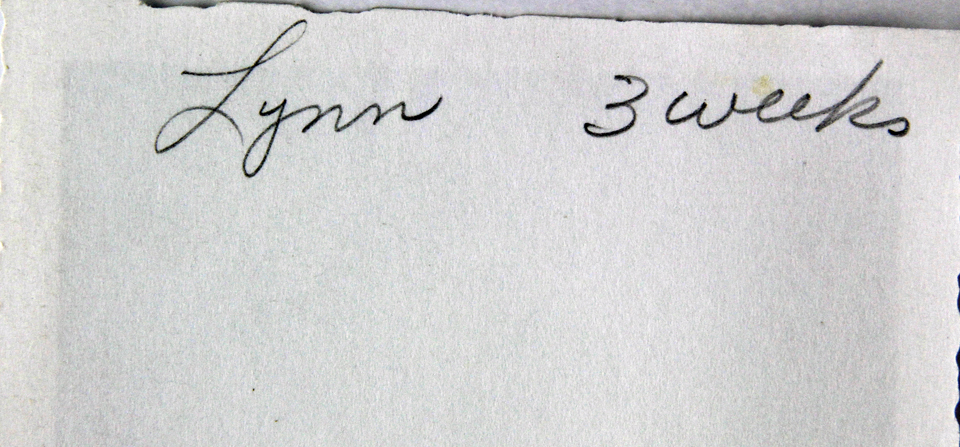 Lynn 3 weeks